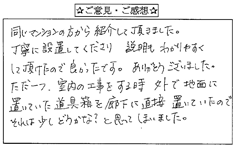 ☆ご意見・ご感想☆
同じマンションの方から紹介して頂きました。
丁寧に設置してくださり 説明もわかりやすく
して頂けたので良かったです。ありがとうございました。
ただ一つ、室内の工事をする時 外で地面に
置いていた道具箱を廊下に直接置いていたので
それは少しどうかな?と思ってしまいました。